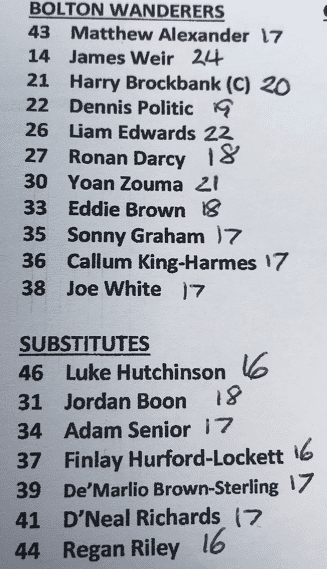 BOLTON WANDERERS
43 Matthew Alexander 17
14 James Weir 24
21 Harry Brockbank (C) 20
22 Dennis Politic 19
26 Liam Edwards 22
27 Ronan Darcy 18
30 Yoan Zouma 21
33 Eddie Brown 18
35 Sonny Graham 17
36 Callum King-Harmes 17
38 Joe White 17
SUBSTITUTES
46 Luke Hutchinson 16
31 Jordan Boon 18
34 Adam Senior 17
37 Finlay Hurford-Lockett 16
39 De'Marlio Brown-Sterling 17
41 D'Neal Richards 17
44 Regan Riley 16